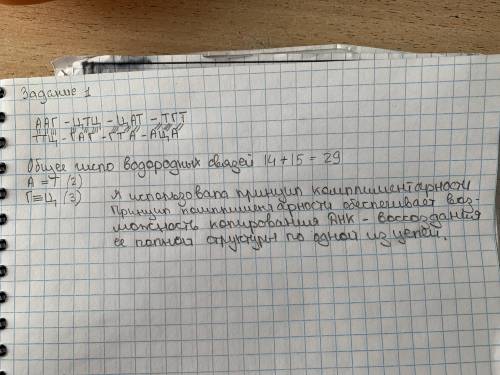 Задание 1
ААГ - ЦТЦ - ЦАТ - ТГТ
ТТЦ - ГАГ - ГТА - АЦА
Общее число водородных связей 14 + 15 = 29
А = Т (2)
Г ≡ Ц (3)
Я использовала принцип комплиментарности
Принцип комплиментарности обеспечивает воз-
можность копирования ДНК - воссоздания
ее полной структуры по одной из цепей.